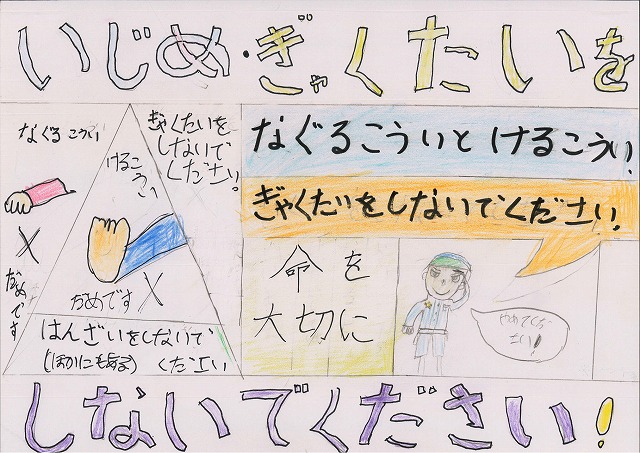 いじめ・ぎゃくたいを
なぐるこうい
けるこ
うい
ぎゃくたいを
しないで
ください。
なぐるこういとけるこうい、
ぎゃくたいをしないでください。
✕
だめです
だめです✕
はんざいをしないで
(ほかにもある)ください
命を
大切に
やめてくだ
さい!
しないでください!